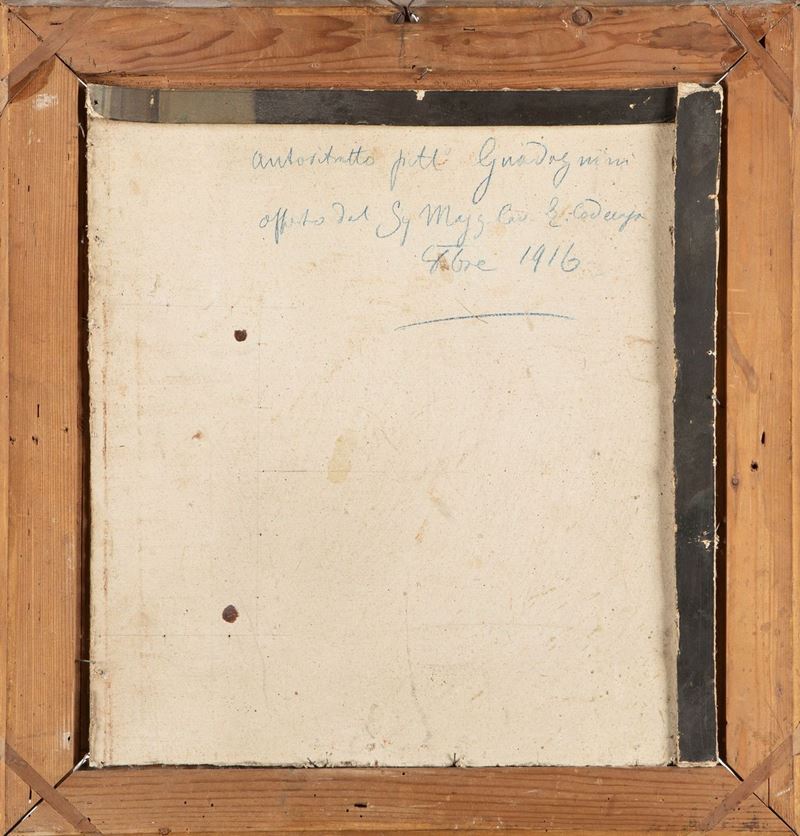 autoritratto pitt. Guadagnini
offerto dal Sg Magg Cav.
Xbre 1916